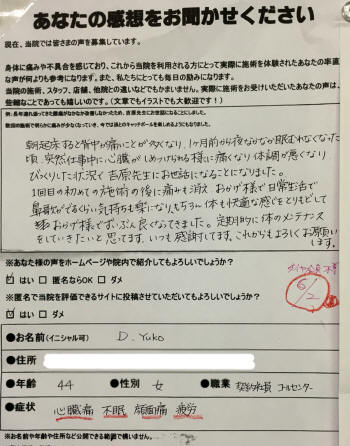 あなたの感想をお聞かせください
現在、当院では皆さまの声を募集しています。
身体に痛みや不具合を感じており、これから当院を利用される方にとって実際に施術を体験されたあなたの率直
な声が何よりも参考になります。また、私たちにとっても毎日の励みになります。
当院の施術、スタッフ、店舗、他院との違いなどでもかまいません。実際に施術をお受けいただいたあなたの声は、
些細なことであっても嬉しいのです。(文章でもイラストでも大歓迎です!)
朝起床すると背中が痛いことが多くなり、1ヶ月前から夜なかなか眠れなくなった
頃、突然仕事中に心臓がしめつけられる様に痛くなり体調が悪くなり
びっくりした状況で吉原先生にお世話になることになりました。
1回目の初めての施術の後に痛みも消え、おかげ様で日常生活で
鼻歌がでるくらい気持ちも楽になり、もちろん体も快適な感じをとりもどして
おかげ様でずいぶん良くなってきました。定期的に体のメンテナンス
をしていきたいと思ってます。いつも感謝してます。これからもよろしくお願いし
ます。
※あなた様の声をホームページや院内で紹介してもよろしいでしょうか?
☑はい □匿名ならOK □ダメ
※匿名で当院を評価できるサイトに投稿させていただいてもよろしいでしょうか?
☑はい □ダメ
6/2
●お名前(イニシャル可) D. Yuko
●住所
●年齢 44 ●性別 女 ●職業 契約社員 コールセンター
●症状 心臓痛 不眠 顔面痛 疲労
※お名前や年齢や住所など公開できる範囲で構いません。